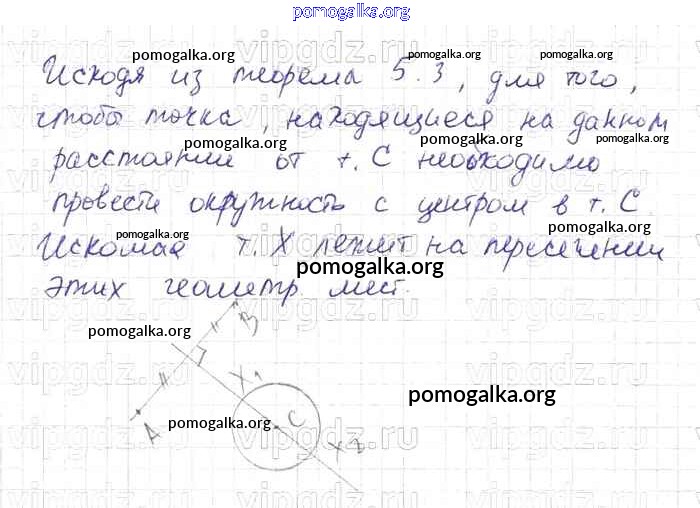 pomogalka.org
Исходя из теорема 5.3, для того,
чтобы точка, находящиеся на данном
расстоянии от т. С необходимо
провести окружность с центром в т. С.
Искомая т. X лежит на пересечении
этих геометр. мест.
B
X₁
C
A
X₂
pomogalka.org
pomogalka.org
pomogalka.org
pomogalka.org
pomogalka.org
pomogalka.org
pomogalka.org
pomogalka.org
pomogalka.org
pomogalka.org
pomogalka.org
pomogalka.org
vipgdz.ru
vipgdz.ru
vipgdz.ru